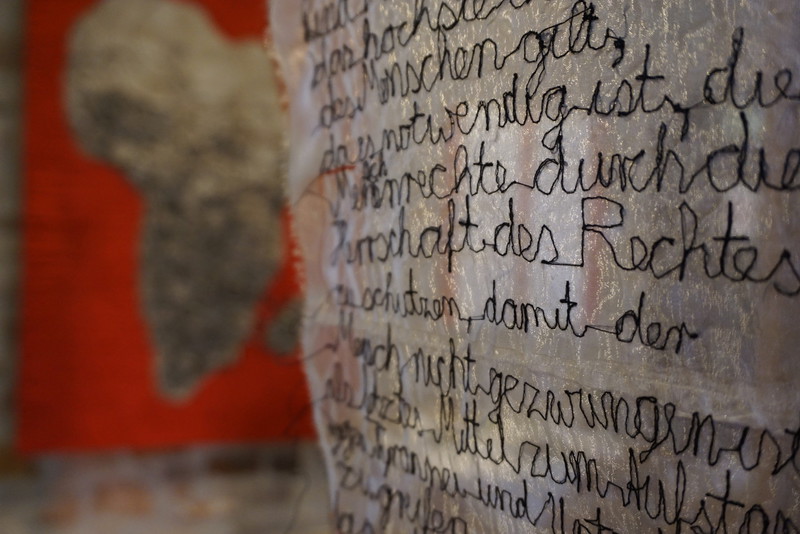 das höchste
des Menschen gilt,
da es notwendig ist, die
Menschenrechte durch die
Herrschaft des Rechtes
zu schützen, damit der
Mensch nicht gezwungen ist
als letztes Mittel zum Aufstan
gegen Tyrannei und Unt
zu greifen